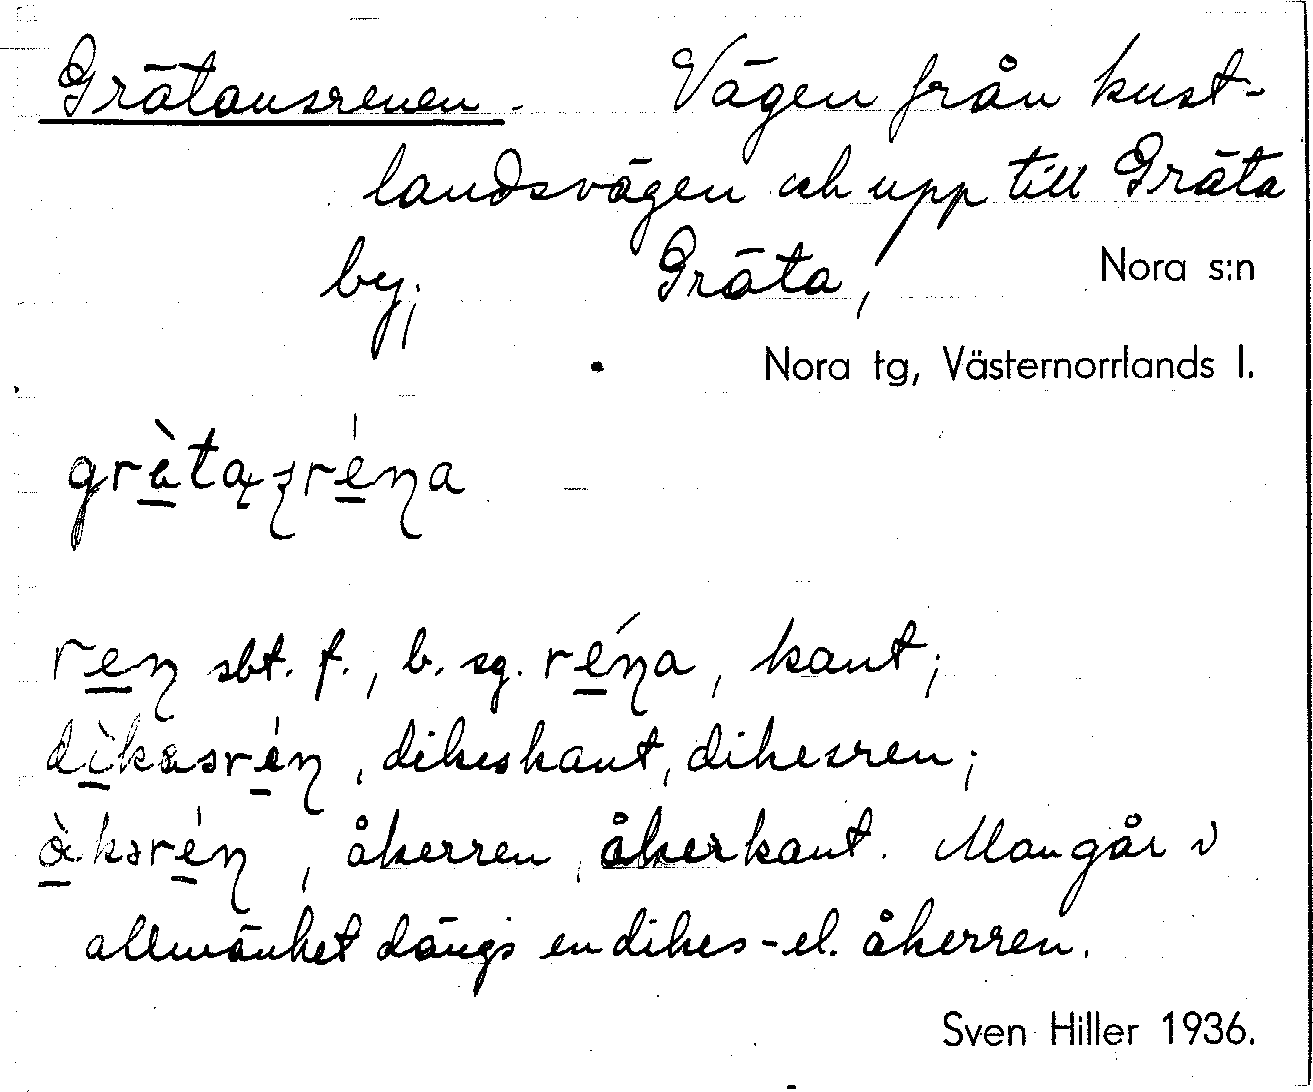 Grätansrenen. Vägen från kust-
landsvägen och upp till Gräta
by; Gräta, Nora s:n
Nora tg, Västernorrlands l.
ren sbt. f., b. sg. réna, kant;
dikasrén, dikeskant, dikesren;
åkerren, åkerkant. Man går i
allmänhet längs en dikes- el. åkerren.
Sven Hiller 1936.